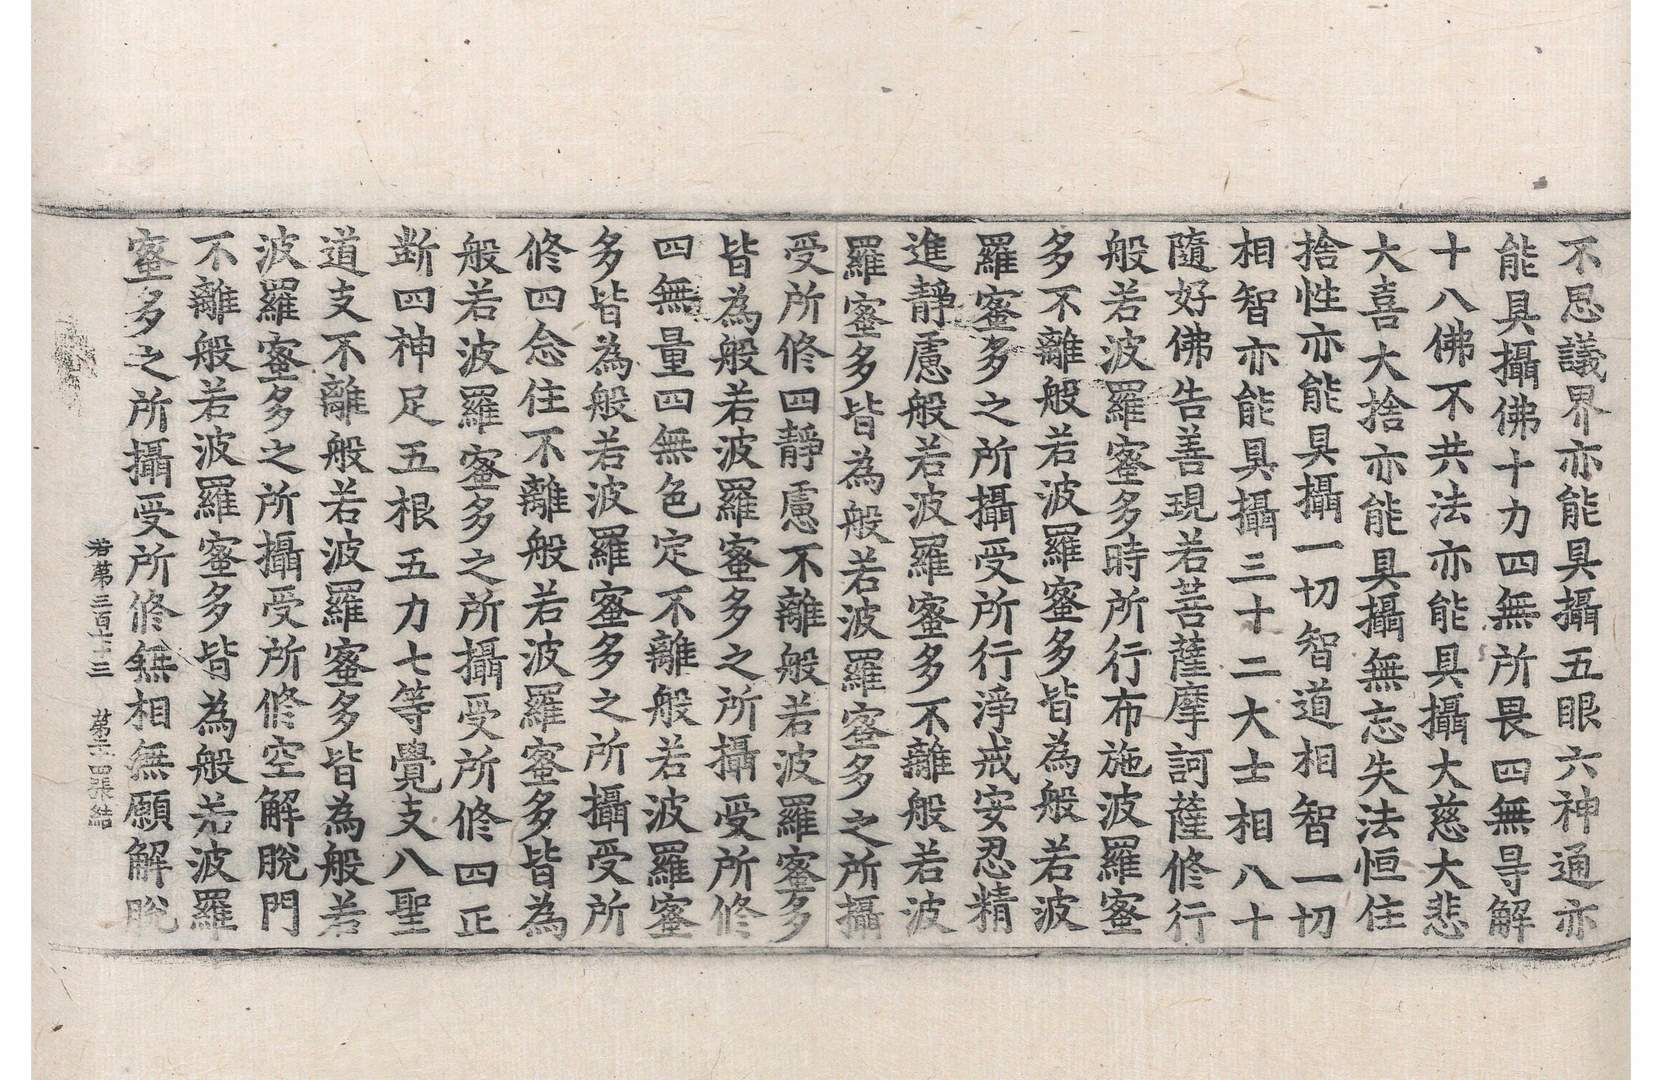 不思議界亦能具攝五眼六神通亦
能具攝佛十力四無所畏四無㝵解
十八佛不共法亦能具攝大慈大悲
大喜大捨亦能具攝無忘失法恒住
捨性亦能具攝一切智道相智一切
相智亦能具攝三十二大士相八十
隨好佛告善現若菩薩摩訶薩修行
般若波羅蜜多時所行布施波羅蜜
多不離般若波羅蜜多皆為般若波
羅蜜多之所攝受所行淨戒安忍精
進靜慮般若波羅蜜多不離般若波
羅蜜多皆為般若波羅蜜多之所攝
受所修四靜慮不離般若波羅蜜多
皆為般若波羅蜜多之所攝受所修
四無量四無色定不離般若波羅蜜
多皆為般若波羅蜜多之所攝受所
修四念住不離般若波羅蜜多皆為
般若波羅蜜多之所攝受所修四正
斷四神足五根五力七等覺支八聖
道支不離般若波羅蜜多皆為般若
波羅蜜多之所攝受所修空解脫門
不離般若波羅蜜多皆為般若波羅
蜜多之所攝受所修無相無願解脫
若第三百七十三 第 張結